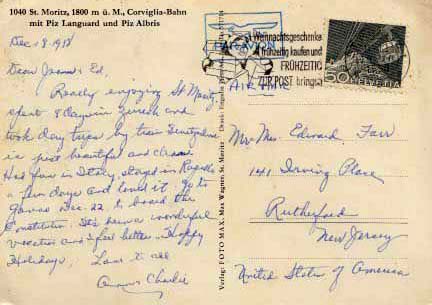 1040 St. Moritz, 1800 m ü. M., Corviglia-Bahn
mit Piz Languard und Piz Albris
Dear Jeanne & Ed,
Really enjoying St Moritz
spent 8 days in Zurich and
took day trips by train Switzerland
is just beautiful and clean.
Had fun in Italy, stayed in Rapallo
a few days and loved it. go to
Genoa Dec. 22 to board the
Constitution. It's been a wonderful
vacation and I feel better. Happy
Holidays, Love to all
Charlie
PAR AVION
Weihnachtsgeschenke
frühzeitig kaufen und
FRÜHZEITIG
ZUR POST bringen
50 HELVETIA
AIR MAIL
Verlag: FOTO MAX, Max Wagner, St. Moritz
Mr. Mrs. Edward Farr
141 Irving Place
Rutherford
New Jersey
United States of America